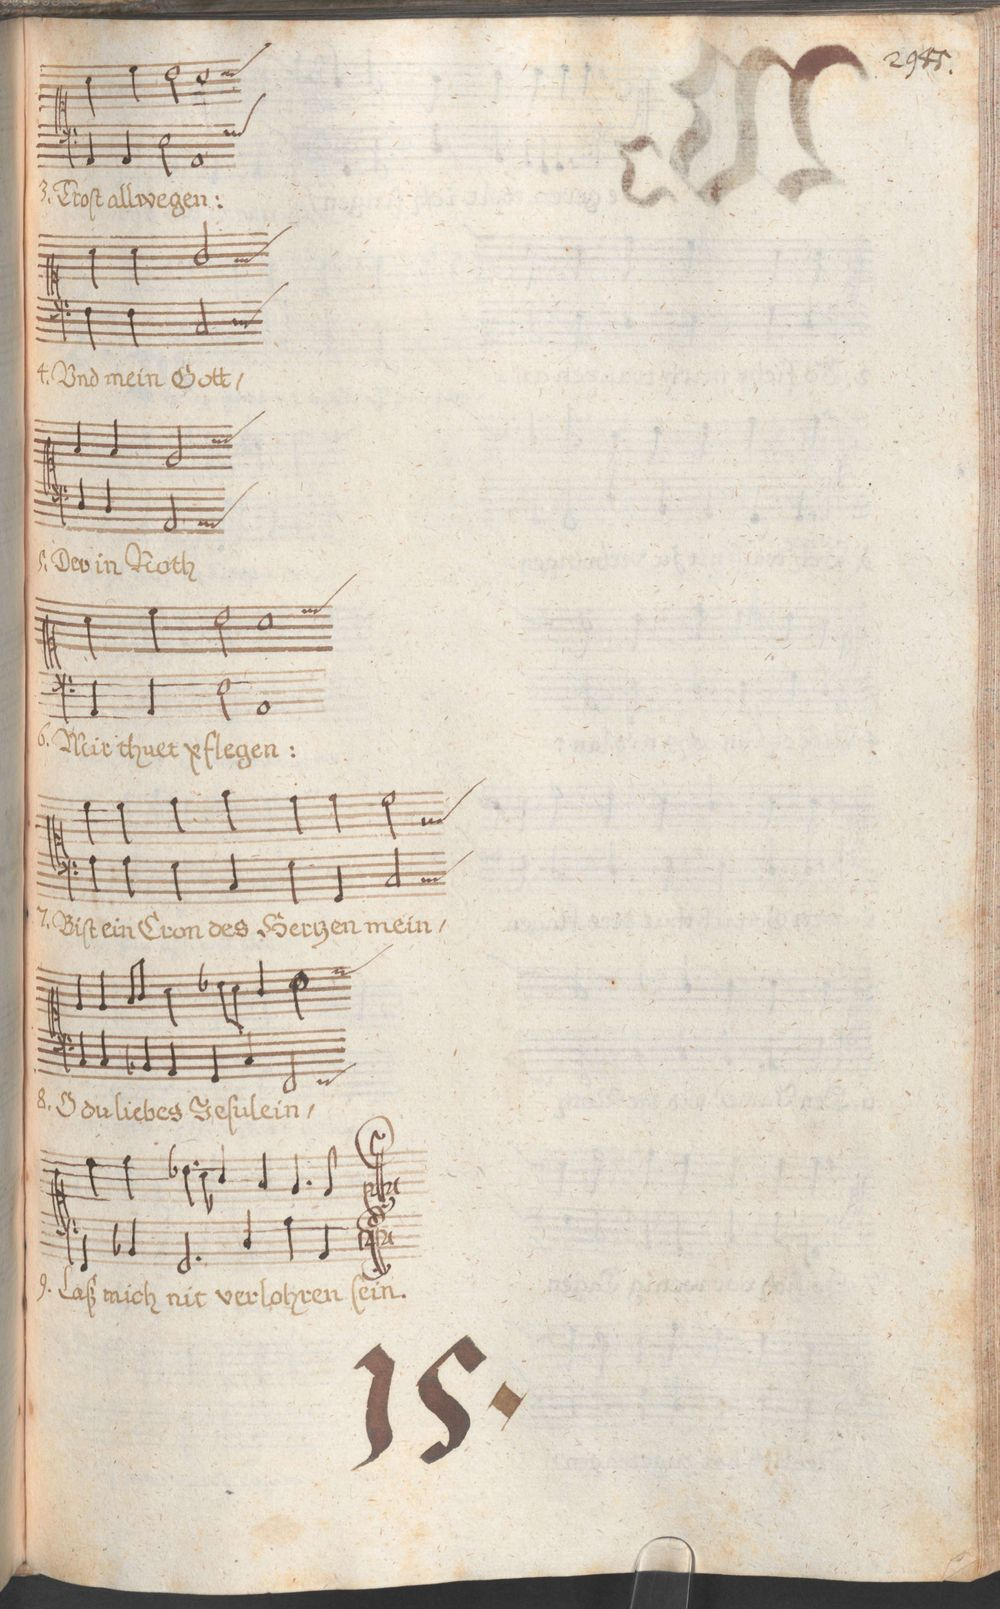 3. Trost allwegen:
4. Vnd mein Gott/
5. Der in Noth
6. Mir thuet pflegen:
7. Bist ein Cron des Hertzen mein/
8. O du liebes Jesulein/
9. Laß mich nit verlohren sein.
15.